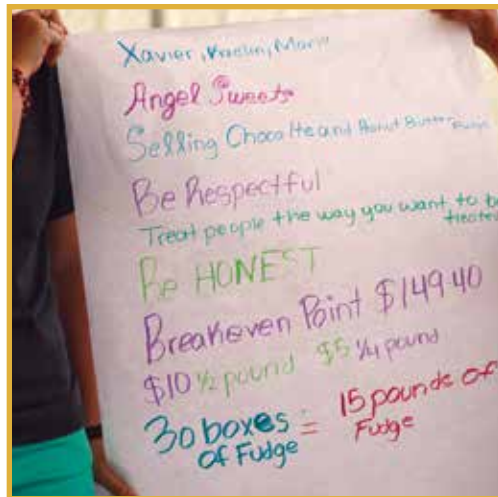 Xavier, Kaelin, Mario
Angel Sweets
Selling Chocolte and Penut Butter Fudge
Be Respectful
Treat people the way you want to be
treated
Be HONEST
Breakeven Point $149.40
$10 1/2 pound $5 1/4 pound
30 boxes = 15 pounds of
of Fudge Fudge